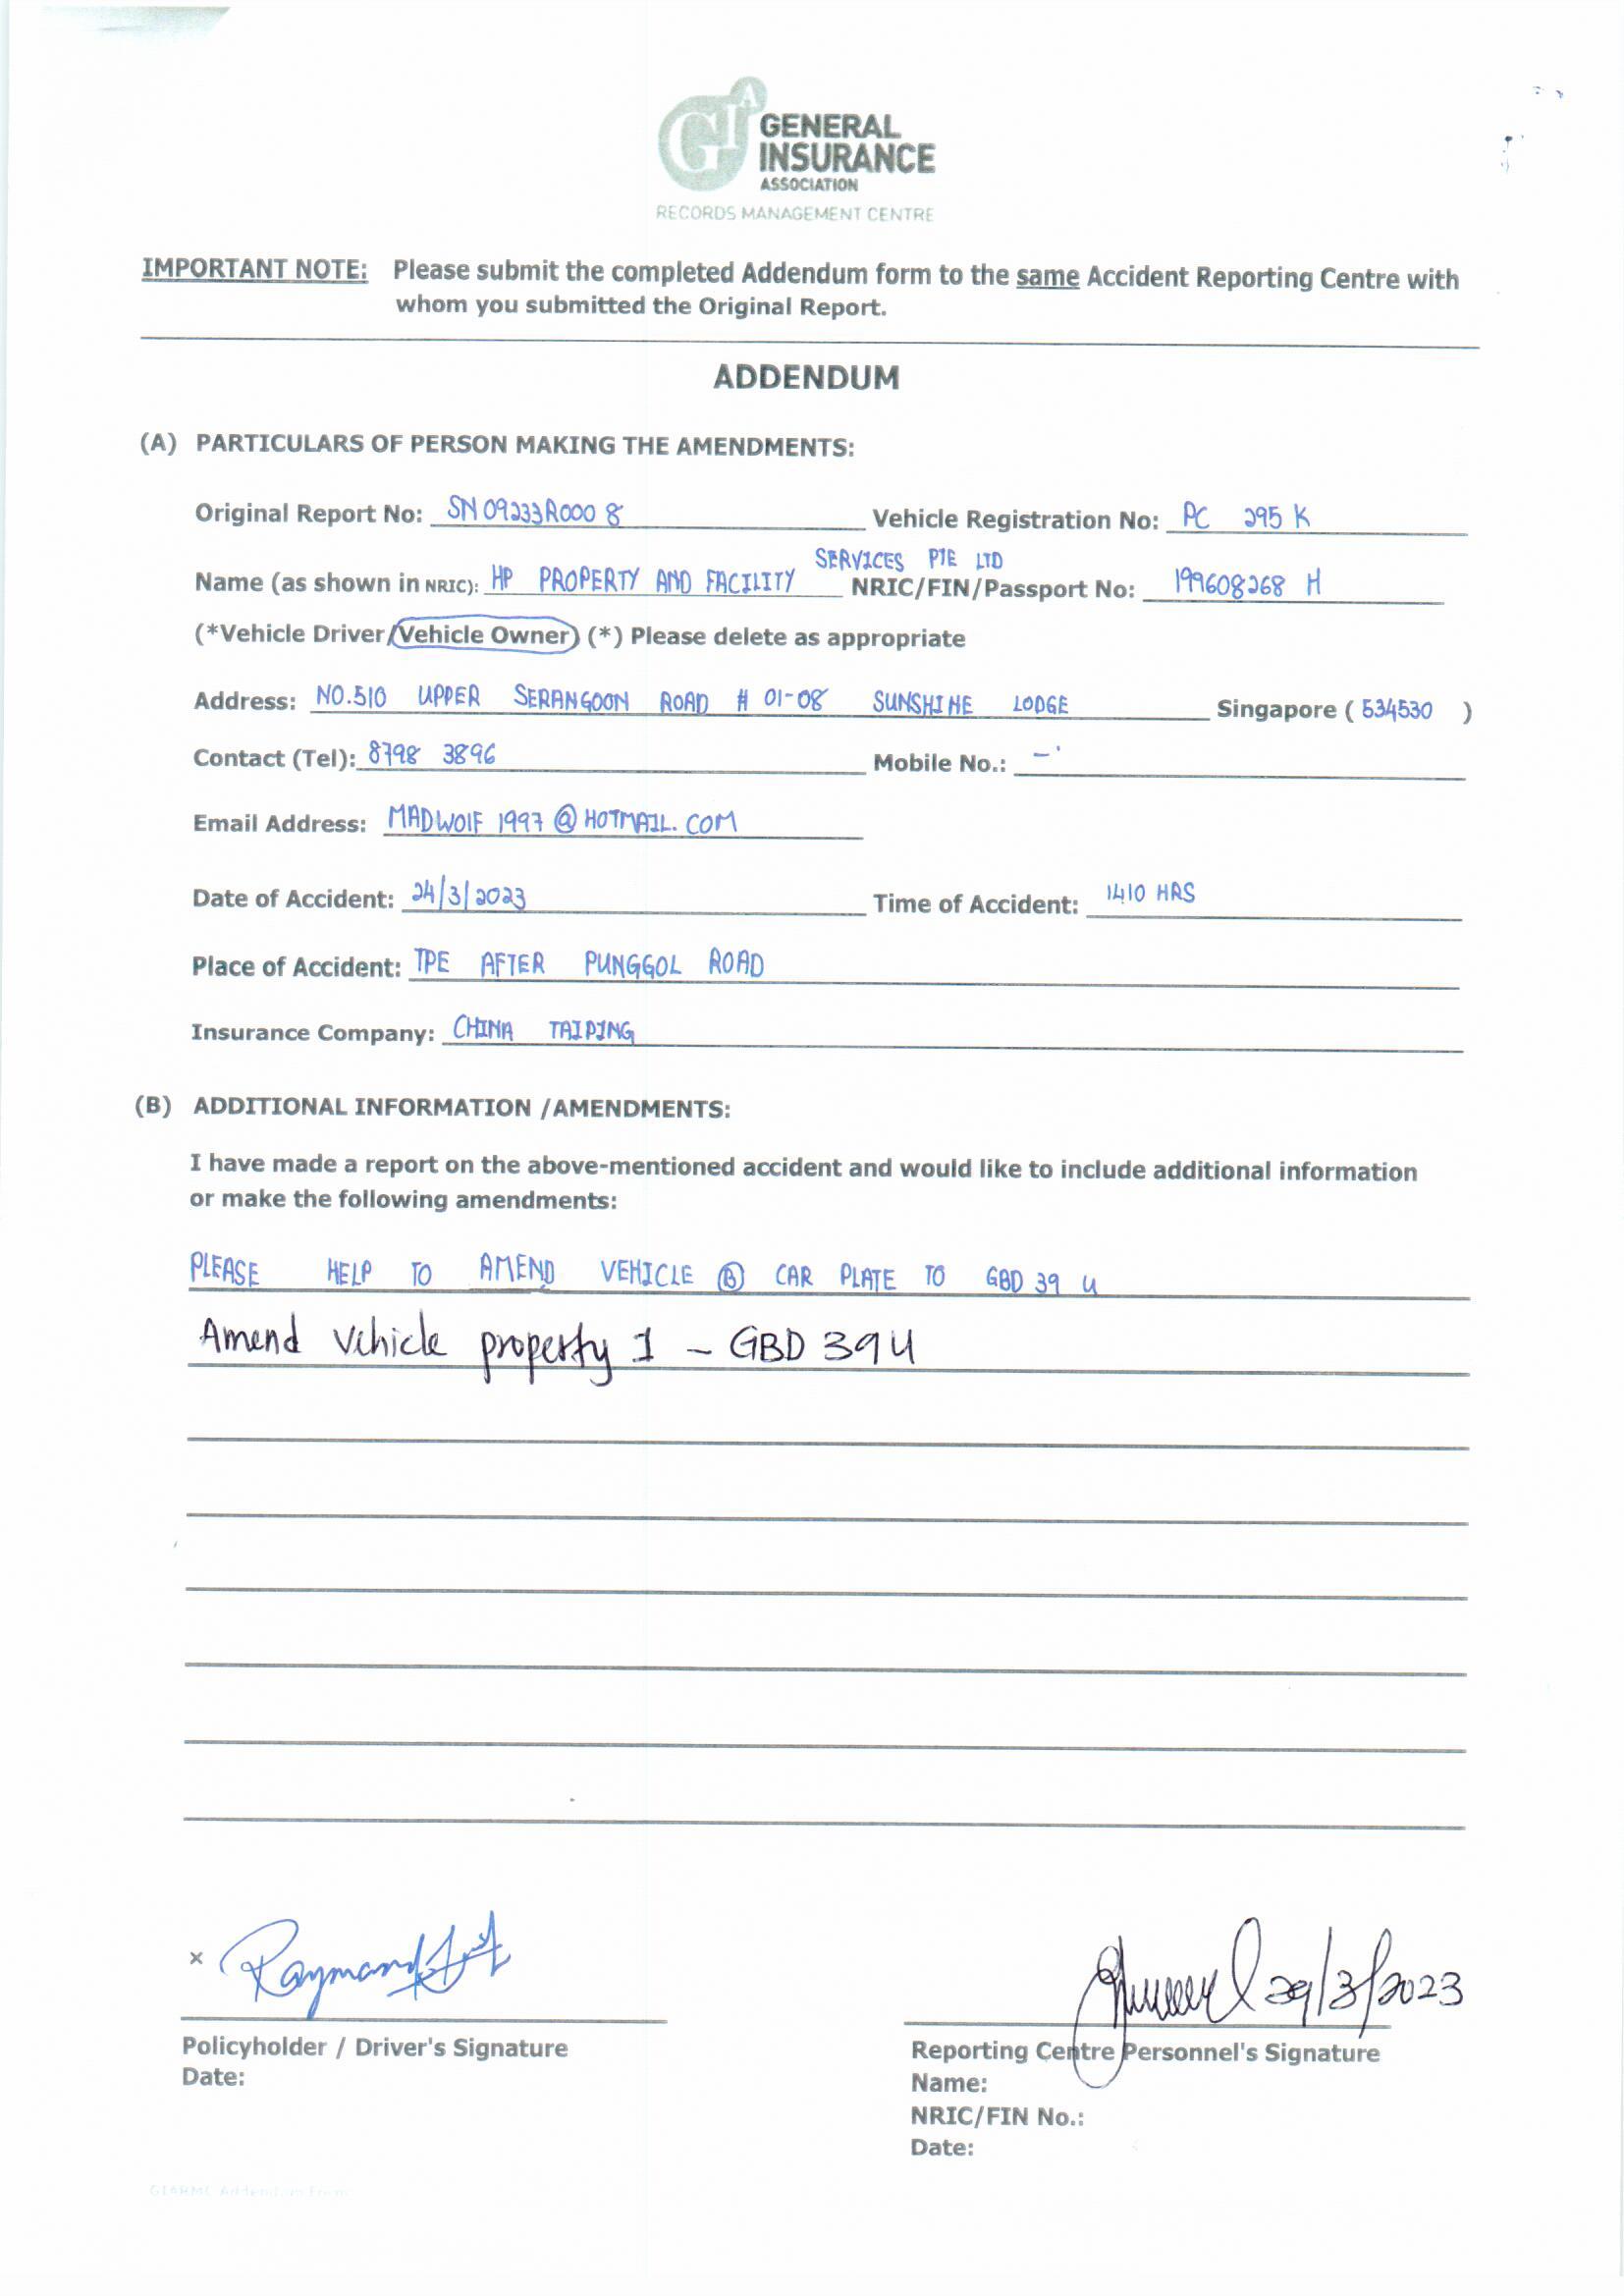 GIA GENERAL
INSURANCE
ASSOCIATION
RECORDS MANAGEMENT CENTRE
IMPORTANT NOTE: Please submit the completed Addendum form to the same Accident Reporting Centre with
whom you submitted the Original Report.
ADDENDUM
(A) PARTICULARS OF PERSON MAKING THE AMENDMENTS:
Original Report No: SN09233R0008 Vehicle Registration No: PC 295 K
SERVICES PTE LTD
Name (as shown in NRIC): HP PROPERTY AND FACILITY NRIC/FIN/Passport No: 199608268 H
(*Vehicle Driver/Vehicle Owner) (*) Please delete as appropriate
Address: NO.510 UPPER SERANGOON ROAD # 01-08 SUNSHINE LODGE Singapore ( 534530 )
Contact (Tel): 8798 3896 Mobile No.: -
Email Address: MADWOLF 1997 @ HOTMAIL. COM
Date of Accident: 24/3/2023 Time of Accident: 1410 HRS
Place of Accident: TPE AFTER PUNGGOL ROAD
Insurance Company: CHINA TAIPING
(B) ADDITIONAL INFORMATION /AMENDMENTS:
I have made a report on the above-mentioned accident and would like to include additional information
or make the following amendments:
PLEASE HELP TO AMEND VEHICLE B CAR PLATE TO GBD 39 U
Amend vehicle property 1 - GBD 39U
x Raymond 29/3/2023
Policyholder / Driver's Signature Reporting Centre Personnel's Signature
Date: Name:
NRIC/FIN No.:
Date:
GIARMC Addendum Form